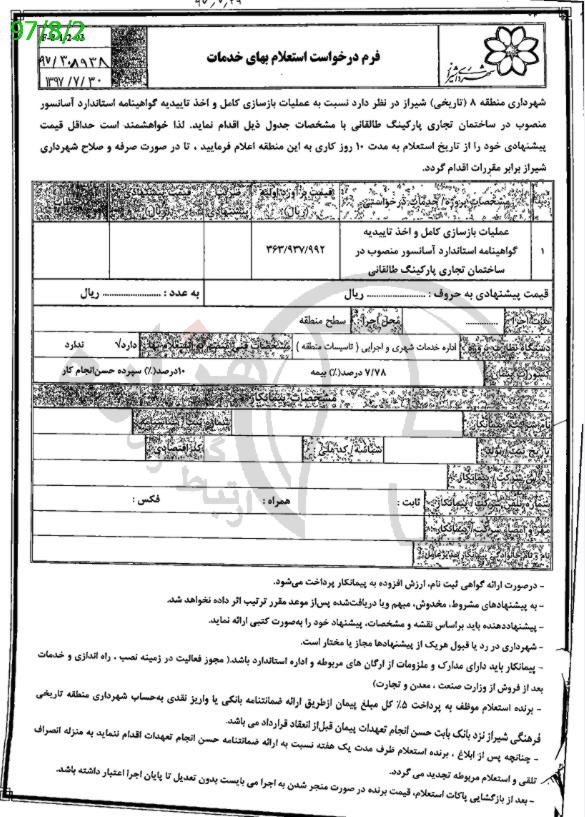 97/8/2
F-2-1/2-03
فرم درخواست استعلام بهای خدمات
۹۷/۳۰۸۹۳۸
۱۳۹۷/۷/۳۰
شهرداری منطقه ۸ (تاریخی) شیراز در نظر دارد نسبت به عملیات بازسازی کامل و اخذ تاییدیه گواهینامه استاندارد آسانسور
منصوب در ساختمان تجاری پارکینگ طالقانی با مشخصات جدول ذیل اقدام نماید. لذا خواهشمند است حداقل قیمت
پیشنهادی خود را از تاریخ استعلام به مدت ۱۰ روز کاری به این منطقه اعلام فرمایید ، تا در صورت صرفه و صلاح شهرداری
شیراز برابر مقررات اقدام گردد.
مشخصات پروژه/خدمات درخواستی
قیمت برآورد اولیه
(ریال)
عملیات بازسازی کامل و اخذ تاییدیه
۱ گواهینامه استاندارد آسانسور منصوب در ۳۶۳/۹۳۷/۹۹۲
ساختمان تجاری پارکینگ طالقانی
قیمت پیشنهادی به حروف : ........................ ریال به عدد : ........................ ریال
محل اجرا : سطح منطقه
اداره خدمات شهری و اجرایی ( تاسیسات منطقه ) دارد√ ندارد
۷/۷۸ درصد(٪) بیمه ۱۰درصد(٪) سپرده حسن‌انجام کار
مشخصات پیمانکار
شناسه/کد ملی : کد اقتصادی :
ثابت : همراه : فکس :
- درصورت ارائه گواهی ثبت نام، ارزش افزوده به پیمانکار پرداخت می‌شود.
- به پیشنهادهای مشروط، مخدوش، مبهم ویا دریافت‌شده پس‌از موعد مقرر ترتیب اثر داده نخواهد شد.
- پیشنهاددهنده باید براساس نقشه و مشخصات، پیشنهاد خود را به‌صورت کتبی ارائه نماید.
- شهرداری در رد یا قبول هریک از پیشنهادها مجاز یا مختار است.
- پیمانکار باید دارای مدارک و ملزومات از ارگان های مربوطه و اداره استاندارد باشد.( مجوز فعالیت در زمینه نصب ، راه اندازی و خدمات
بعد از فروش از وزارت صنعت ، معدن و تجارت)
- برنده استعلام موظف به پرداخت ۵٪ کل مبلغ پیمان ازطریق ارائه ضمانتنامه بانکی یا واریز نقدی به‌حساب شهرداری منطقه تاریخی
فرهنگی شیراز نزد بانک بابت حسن انجام تعهدات پیمان قبل‌از انعقاد قرارداد می باشد.
- چنانچه پس از ابلاغ ، برنده استعلام ظرف مدت یک هفته نسبت به ارائه ضمانتنامه حسن انجام تعهدات اقدام ننماید به منزله انصراف
تلقی و استعلام مربوطه تجدید می گردد.
- بعد از بازگشایی پاکات استعلام، قیمت برنده در صورت منجر شدن به اجرا می بایست بدون تعدیل تا پایان اجرا اعتبار داشته باشد.